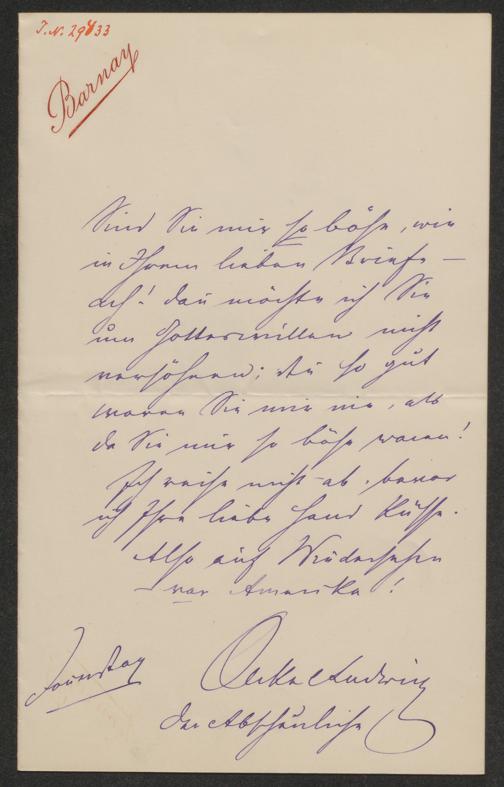 J.N. 29833
Barnay
Sind Sie mir so böse, wie
in Ihrem lieben Briefe –
ach! dann möchte ich Sie
um Gotteswillen nicht
versöhnen; so gut
waren Sie mir nie, als
da Sie mir so böse waren!
Ich reise nicht ab, bevor
ich Ihre liebe Hand küsse.
Also auf Wiedersehen
– vor Amerika!
Onkel Ludwig
Sonntag
der Abscheuliche